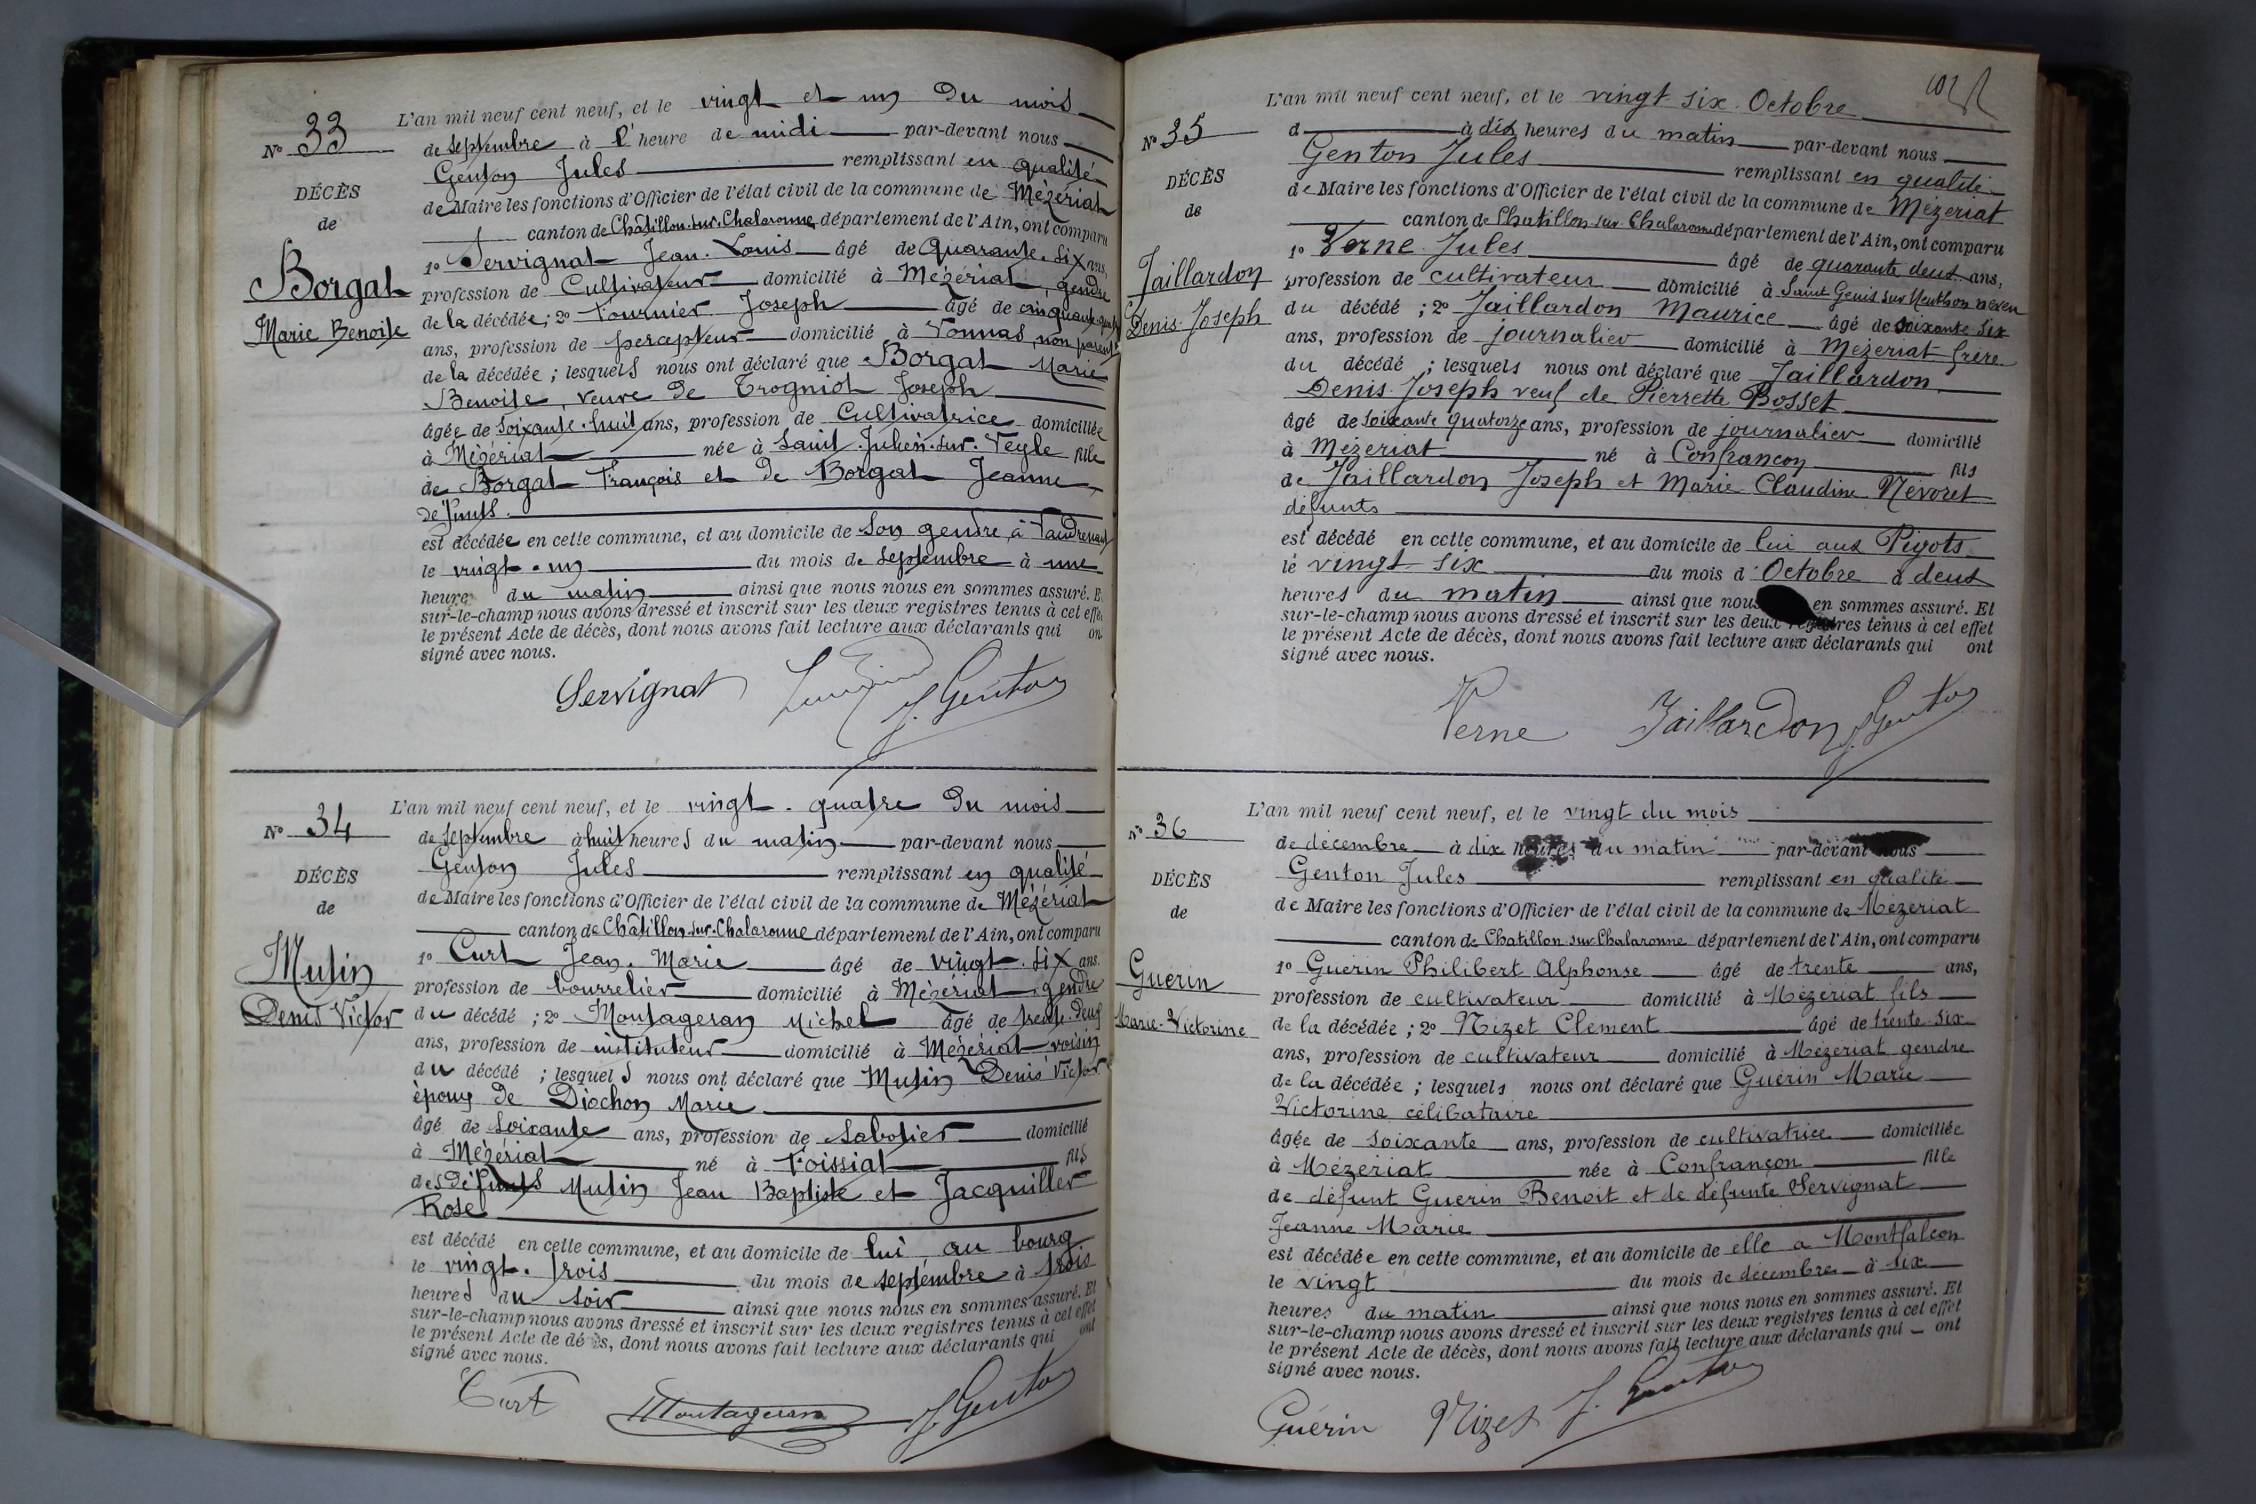 L'an mil neuf cent neuf, et le vingt et un du mois
N° 33
de septembre à l'heure de midi par-devant nous
Genton Jules remplissant en qualité
DÉCÈS
de Maire les fonctions d'Officier de l'état civil de la commune de Mézériat
de
canton de Châtillon-sur-Chalaronne département de l'Ain, ont comparu
1° Servignat Jean-Louis âgé de quarante-six ans,
Borgat
profession de Cultivateur domicilié à Mézériat, gendre
Marie Benoite
de la décédée; 2° Fournier Joseph âgé de cinquante
ans, profession de percepteur domicilié à Vonnas, non parent
de la décédée; lesquels nous ont déclaré que Borgat Marie
Benoite, veuve de Trogniot Joseph
âgée de soixante-huit ans, profession de Cultivatrice domiciliée
à Mézériat née à Saint-Julien-sur-Veyle fille
de Borgat François et de Borgat Jeanne
défunts.
est décédée en cette commune, et au domicile de son gendre, à
le vingt-un du mois de septembre à une
heure du matin ainsi que nous nous en sommes assuré. E
sur-le-champ nous avons dressé et inscrit sur les deux registres tenus à cet effe
le présent Acte de décès, dont nous avons fait lecture aux déclarants qui on
signé avec nous.
Servignat J. Genton
L'an mil neuf cent neuf, et le vingt-quatre du mois
N° 34
de septembre à huit heures du matin par-devant nous
Genton Jules remplissant en qualité
DÉCÈS
de Maire les fonctions d'Officier de l'état civil de la commune de Mézériat
de
canton de Châtillon-sur-Chalaronne département de l'Ain, ont comparu
1° Curt Jean-Marie âgé de vingt-six ans.
Mutin
profession de bourrelier domicilié à Mézériat, gendre
Denis Victor
du décédé; 2° Montageran Michel âgé de trente-deux
ans, profession de instituteur domicilié à Mézériat voisin
du décédé; lesquels nous ont déclaré que Mutin Denis Victor
époux de Diochon Marie
âgé de soixante ans, profession de sabotier domicilié
à Mézériat né à Foissiat fils
des défunts Mutin Jean Baptiste et Jacquiller
Rose
est décédé en cette commune, et au domicile de lui au bourg
le vingt-trois du mois de septembre à trois
heures du soir ainsi que nous nous en sommes assuré. Et
sur-le-champ nous avons dressé et inscrit sur les deux registres tenus à cet effet
le présent Acte de décès, dont nous avons fait lecture aux déclarants qui ont
signé avec nous.
Curt Montageran J. Genton
L'an mil neuf cent neuf, et le vingt-six Octobre
N° 35
à dix heures du matin par-devant nous
Genton Jules remplissant en qualité
DÉCÈS
de Maire les fonctions d'Officier de l'état civil de la commune de Mézériat
de
canton de Chatillon-sur-Chalaronne département de l'Ain, ont comparu
1° Verne Jules âgé de quarante deux ans,
Jaillardon
profession de cultivateur domicilié à Saint Genis sur Menthon neveu
Denis-Joseph
du décédé; 2° Jaillardon Maurice âgé de soixante six
ans, profession de journalier domicilié à Mézériat frère
du décédé; lesquels nous ont déclaré que Jaillardon
Denis-Joseph veuf de Pierrette Bosset
âgé de soixante quatorze ans, profession de journalier domicilié
à Mézériat né à Confrançon fils
de Jaillardon Joseph et Marie Claudine Névoret
défunts
est décédé en cette commune, et au domicile de lui aux Pigots
le vingt-six du mois d'Octobre à deux
heures du matin ainsi que nous en sommes assuré. Et
sur-le-champ nous avons dressé et inscrit sur les deux registres tenus à cet effet
le présent Acte de décès, dont nous avons fait lecture aux déclarants qui ont
signé avec nous.
Verne Jaillardon J. Genton
L'an mil neuf cent neuf, et le vingt du mois
N° 36
de décembre à dix heures du matin par-devant nous
Genton Jules remplissant en qualité
DÉCÈS
de Maire les fonctions d'Officier de l'état civil de la commune de Mézériat
de
canton de Chatillon sur Chalaronne département de l'Ain, ont comparu
1° Guérin Philibert Alphonse âgé de trente ans,
Guérin
profession de cultivateur domicilié à Mézériat fils
Marie-Victorine
de la décédée; 2° Nizet Clément âgé de trente-six
ans, profession de cultivateur domicilié à Mézériat gendre
de la décédée; lesquels nous ont déclaré que Guérin Marie
Victorine célibataire
âgée de soixante ans, profession de cultivatrice domiciliée
à Mézériat née à Confrançon fille
de défunt Guérin Benoit et de défunte Servignat
Jeanne Marie
est décédée en cette commune, et au domicile de elle à Montfalcon
le vingt du mois de décembre à six
heures du matin ainsi que nous nous en sommes assuré. Et
sur-le-champ nous avons dressé et inscrit sur les deux registres tenus à cet effet
le présent Acte de décès, dont nous avons fait lecture aux déclarants qui ont
signé avec nous.
Guérin Nizet J. Genton